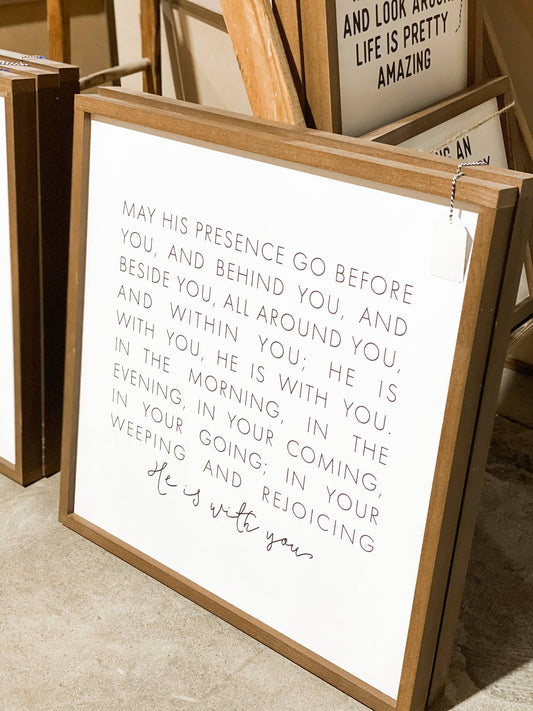 AND LOOK AROUND
LIFE IS PRETTY
AMAZING
AN
MAY HIS PRESENCE GO BEFORE
YOU, AND BEHIND YOU, AND
BESIDE YOU, ALL AROUND YOU,
AND WITHIN YOU; HE IS
WITH YOU, HE IS WITH YOU.
IN THE MORNING, IN THE
EVENING, IN YOUR COMING,
IN YOUR GOING; IN YOUR
WEEPING AND REJOICING
He is with you